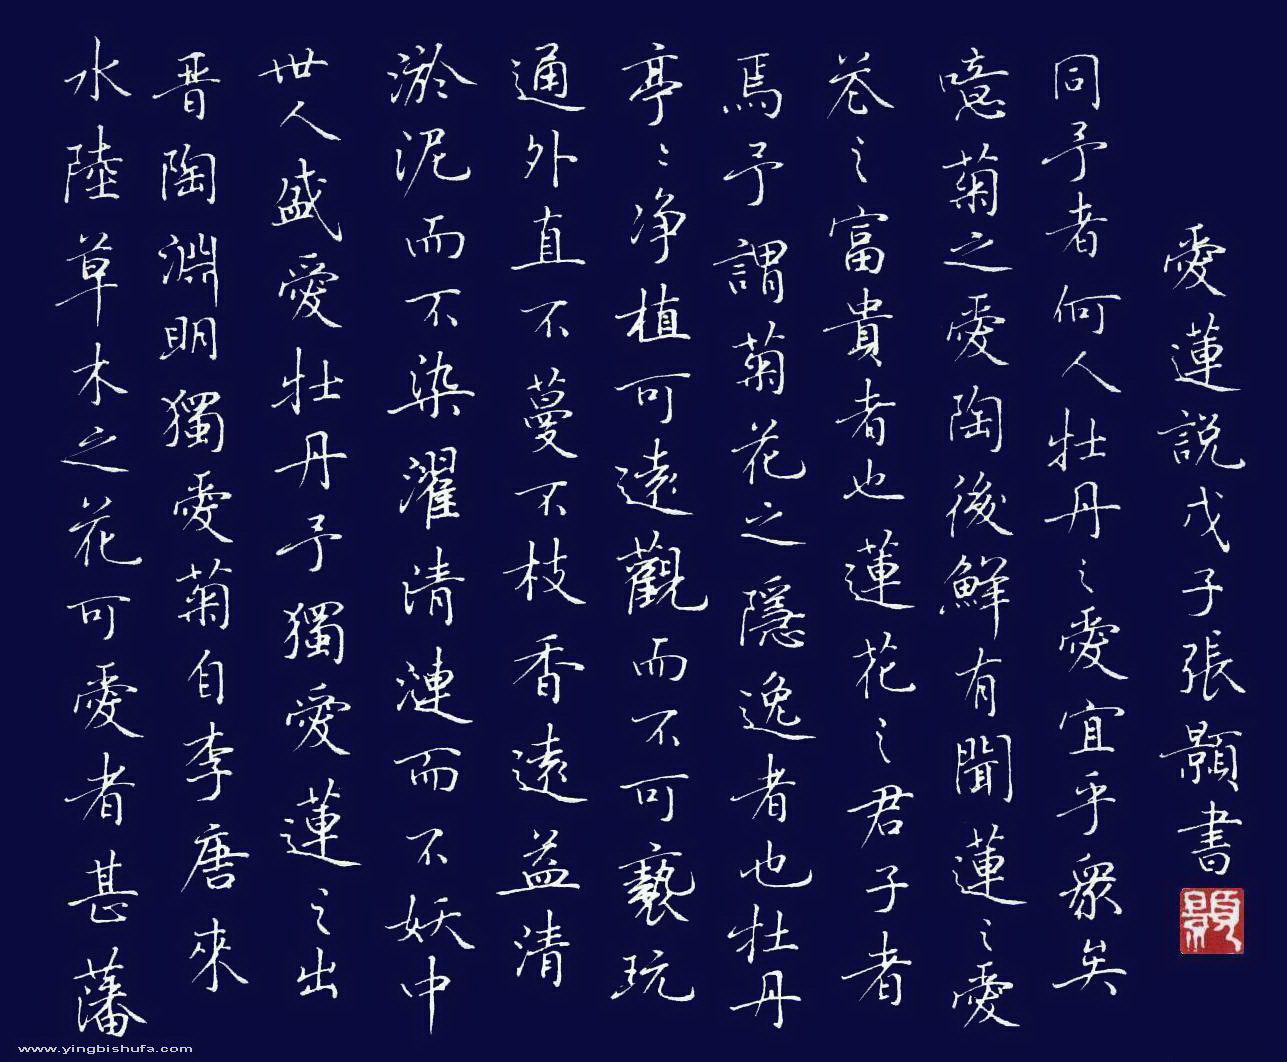 水陸草木之花可愛者甚藩
晋陶淵明獨愛菊自李唐來
世人盛愛牡丹予獨愛蓮之出
淤泥而不染濯清漣而不妖中
通外直不蔓不枝香遠益清
亭〻净植可遠觀而不可褻玩
焉予謂菊花之隱逸者也牡丹
花之富貴者也蓮花之君子者
噫菊之愛陶後鮮有聞蓮之愛
同予者何人牡丹之愛宜乎衆矣
愛蓮說戊子張顥書
顥
www.yingbishufa.com